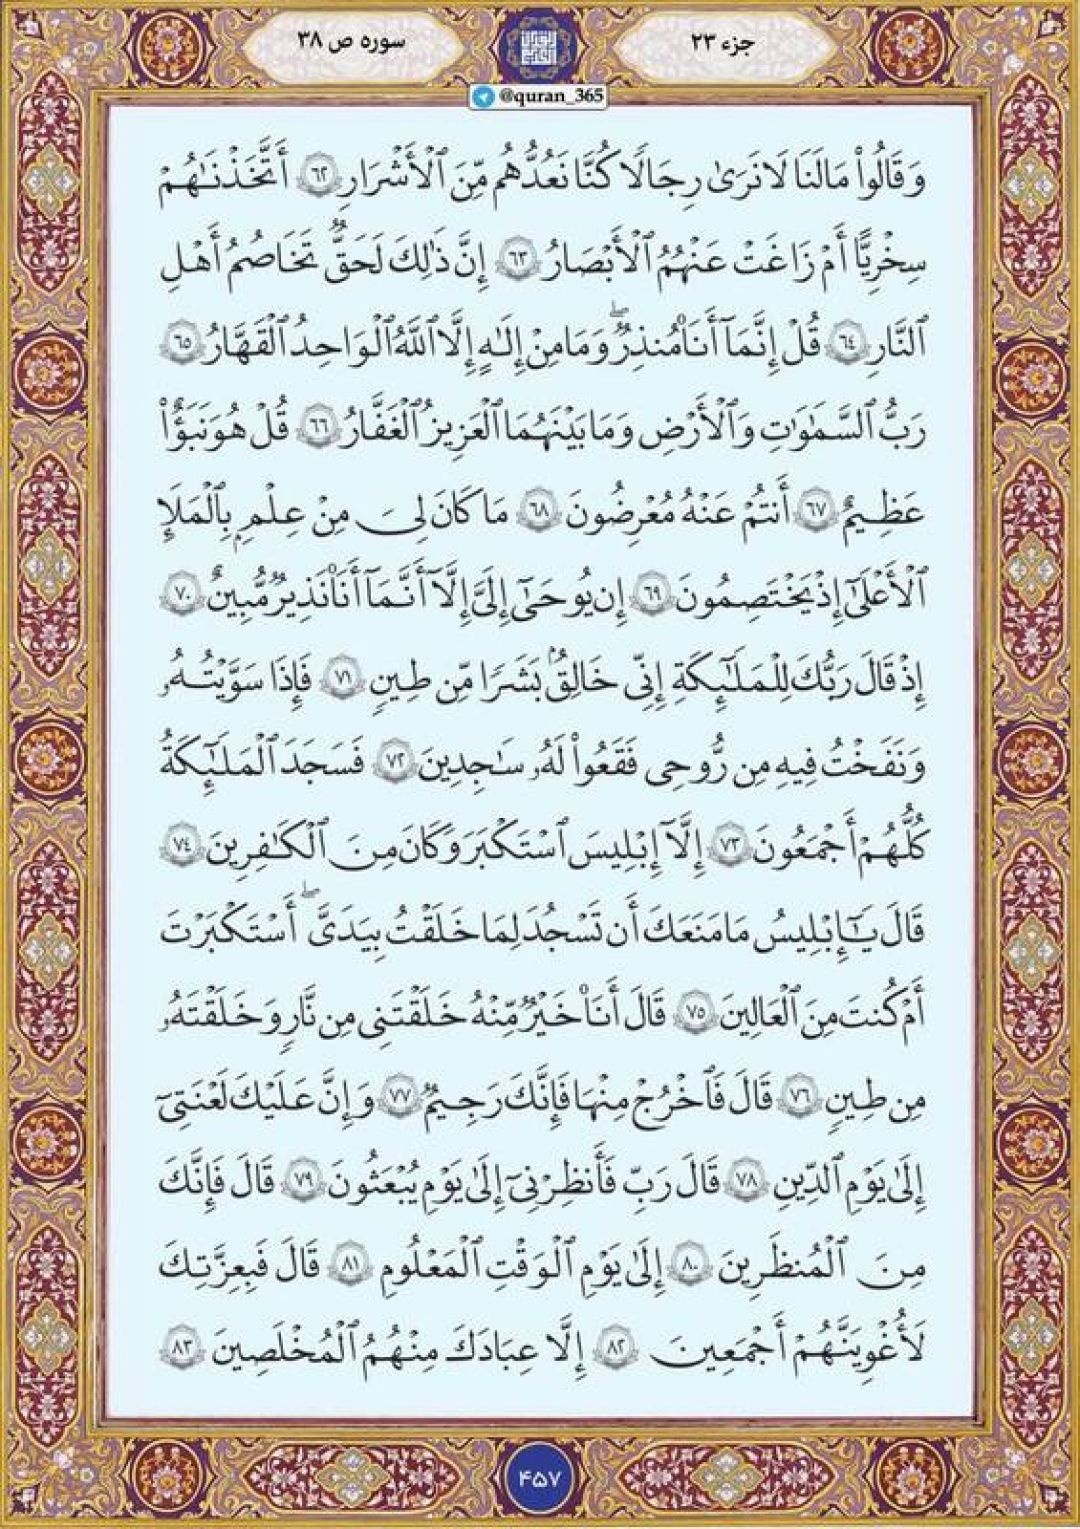 جزء ۲۳
سوره ص ۳۸
@quran_365
وَقَالُوا۟ مَا لَنَا لَا نَرَىٰ رِجَالًا كُنَّا نَعُدُّهُم مِّنَ ٱلْأَشْرَارِ ٦٢ أَتَّخَذْنَـٰهُمْ
سِخْرِيًّا أَمْ زَاغَتْ عَنْهُمُ ٱلْأَبْصَـٰرُ ٦٣ إِنَّ ذَٰلِكَ لَحَقٌّ تَخَاصُمُ أَهْلِ
ٱلنَّارِ ٦٤ قُلْ إِنَّمَآ أَنَا۠ مُنذِرٌ ۖ وَمَا مِنْ إِلَـٰهٍ إِلَّا ٱللَّهُ ٱلْوَاحِدُ ٱلْقَهَّارُ ٦٥
رَبُّ ٱلسَّمَـٰوَٰتِ وَٱلْأَرْضِ وَمَا بَيْنَهُمَا ٱلْعَزِيزُ ٱلْغَفَّـٰرُ ٦٦ قُلْ هُوَ نَبَؤٌا۟
عَظِيمٌ ٦٧ أَنتُمْ عَنْهُ مُعْرِضُونَ ٦٨ مَا كَانَ لِىَ مِنْ عِلْمٍۭ بِٱلْمَلَإِ
ٱلْأَعْلَىٰٓ إِذْ يَخْتَصِمُونَ ٦٩ إِن يُوحَىٰٓ إِلَىَّ إِلَّآ أَنَّمَآ أَنَا۠ نَذِيرٌ مُّبِينٌ ٧٠
إِذْ قَالَ رَبُّكَ لِلْمَلَـٰٓئِكَةِ إِنِّى خَـٰلِقٌۢ بَشَرًا مِّن طِينٍ ٧١ فَإِذَا سَوَّيْتُهُۥ
وَنَفَخْتُ فِيهِ مِن رُّوحِى فَقَعُوا۟ لَهُۥ سَـٰجِدِينَ ٧٢ فَسَجَدَ ٱلْمَلَـٰٓئِكَةُ
كُلُّهُمْ أَجْمَعُونَ ٧٣ إِلَّآ إِبْلِيسَ ٱسْتَكْبَرَ وَكَانَ مِنَ ٱلْكَـٰفِرِينَ ٧٤
قَالَ يَـٰٓإِبْلِيسُ مَا مَنَعَكَ أَن تَسْجُدَ لِمَا خَلَقْتُ بِيَدَىَّ ۖ أَسْتَكْبَرْتَ
أَمْ كُنتَ مِنَ ٱلْعَالِينَ ٧٥ قَالَ أَنَا۠ خَيْرٌ مِّنْهُ خَلَقْتَنِى مِن نَّارٍ وَخَلَقْتَهُۥ
مِن طِينٍ ٧٦ قَالَ فَٱخْرُجْ مِنْهَا فَإِنَّكَ رَجِيمٌ ٧٧ وَإِنَّ عَلَيْكَ لَعْنَتِىٓ
إِلَىٰ يَوْمِ ٱلدِّينِ ٧٨ قَالَ رَبِّ فَأَنظِرْنِىٓ إِلَىٰ يَوْمِ يُبْعَثُونَ ٧٩ قَالَ فَإِنَّكَ
مِنَ ٱلْمُنظَرِينَ ٨٠ إِلَىٰ يَوْمِ ٱلْوَقْتِ ٱلْمَعْلُومِ ٨١ قَالَ فَبِعِزَّتِكَ
لَأُغْوِيَنَّهُمْ أَجْمَعِينَ ٨٢ إِلَّا عِبَادَكَ مِنْهُمُ ٱلْمُخْلَصِينَ ٨٣
۴۵۷